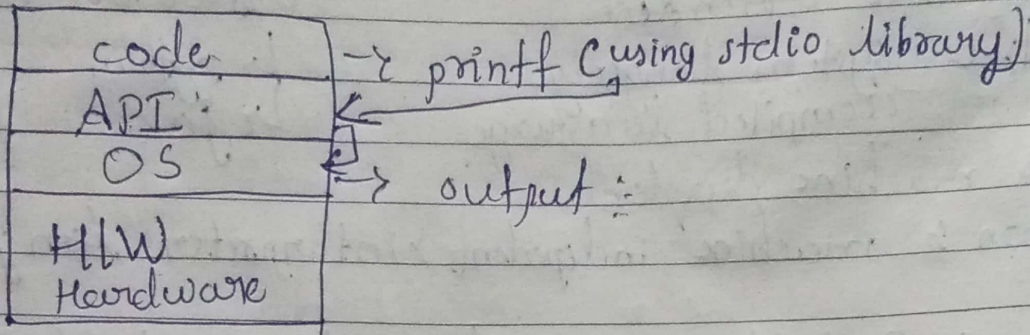 code → printf (using stdio library)
API
OS
→ output :
H/W
Hardware